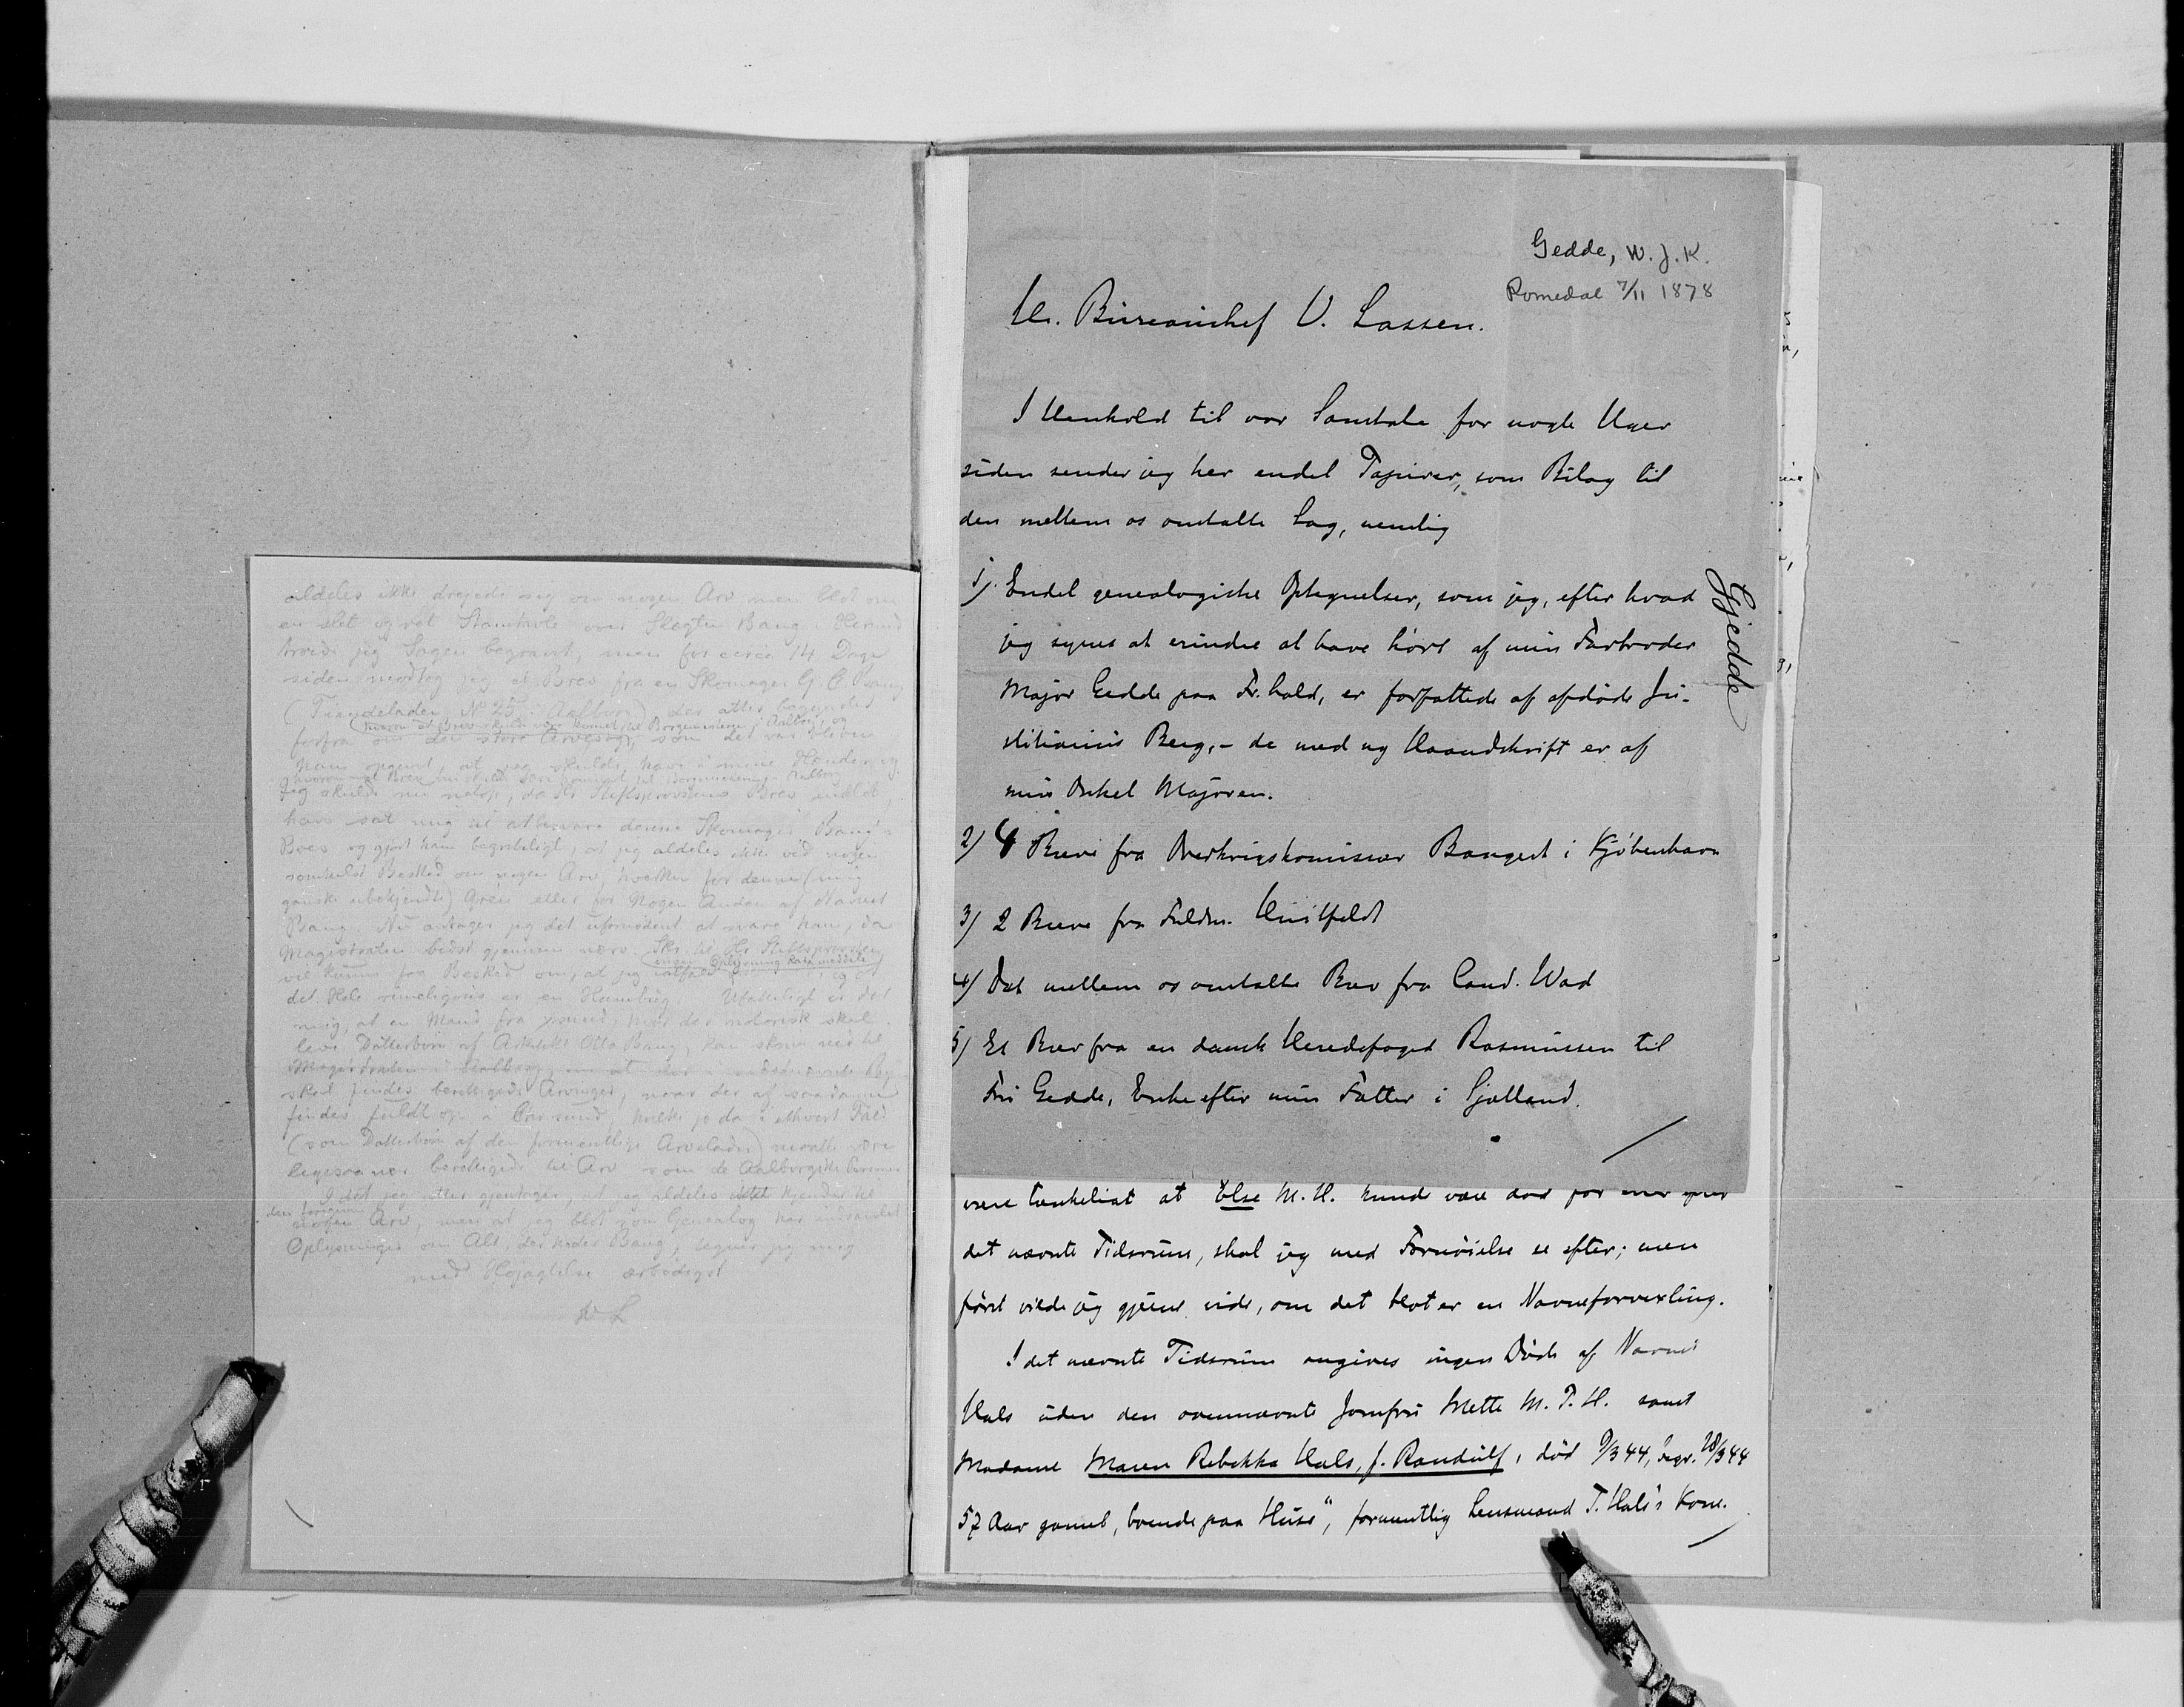 aldeles ikke drejede sig om nogen Arv men blot om
en slet og ret Stamtavle over Slægten Bang. Hermed
troede jeg Sagen begravet, men for circa 14 Dage
siden modtog jeg et Brev fra en Skomager G C Bang
(Tiendeladen No 25 i Aalborg) der atter begyndte
forfra om den store Arvesag, som det var bleven
ham opgivet at jeg skulde have i mine Hænder og
hvorom et Brev skulde være kommet til Borgmesteren i Aalborg
Jeg skulde nu netop, da Hr Stiftsprovstens Brev indløb,
have sat mig til at besvare denne Skomager Bang's
Brev og gjort ham begribeligt, at jeg aldeles ikke ved nogen
somhelst Besked om nogen Arv, hverken for denne (mig
ganske ubekjendte) Green eller for nogen Anden af Navnet
Bang. Nu antager jeg det ufornødent at svare ham, da
Magistraten bedst gjennem nærv. Skr. til Hr Stiftsprovsten
vil kunne faa Besked om, at jeg ingen Oplysning kan meddele og at
det Hele rimeligvis er en Humbug. Ufatteligt er det
mig, at en Mand fra
leve Datterbørn af Arkitekt Otto Bang, kan skrive ned til
Magistraten i Aalborg, om at der
skal findes berettigede Arvinger, naar der af saadanne
findes fuldt op i hvilke jo da i ethvert Fald
(som Datterbørn af den formentlige Arvelader) maatte være
ligesaa nær berettigede til Arv som de Aalborgske
Idet jeg atter gjentager, at jeg aldeles intet kjender til
nogen Arv, men at jeg blot som Genealog har indsamlet
Oplysninger om Alt, der heder Bang, tegner jeg mig
med Højagtelse ærbødigst
Gedde, W. J. K.
Romedal 7/11 1878
Hr. Bureauchef V. Lassen.
I Henhold til vor Samtale for nogle Uger
siden sender jeg her endel Papirer, som Bilag til
den mellem os omtalte Sag, nemlig
1). Endel genealogiske Optegnelser, som jeg, efter hvad
jeg synes at erindre at have hört af min Farbroder
Major Gedde paa Fr.hald, er forfattede af afdöde Ju-
stitiarius Berg, - de med ny Haandskrift er af
min Onkel Majoren.
Gjedde
2) 4 Breve fra Overkrigskomissær Bangert i Kjöbenhavn
3) 2 Breve fra Fuldm. Huitfeldt
4) Det mellem os omtalte Brev fra Cand. Wad
5) Et Brev fra en dansk Herredsfoged Rasmussen til
Fru Gedde, Enke efter min Fætter i Sjælland.
være tænkeligt at Else M. H. kunde være död för eller efter
det nævnte Tidsrum, skal jeg med Fornöielse se efter; men
först vilde jeg gjerne vide, om det blot er en Navneforvexling.
I det nævnte Tidsrum angives ingen Döde af Navnet
Hals uden den ovennævnte Jomfru Mette M. T. H. samt
Madame Maren Rebekka Hals, f. Randulf, död 9/3 44, begr. 18/3 44
57 Aar gamel, boende paa Huse", formentlig Lensmand T. Hals's Kone.